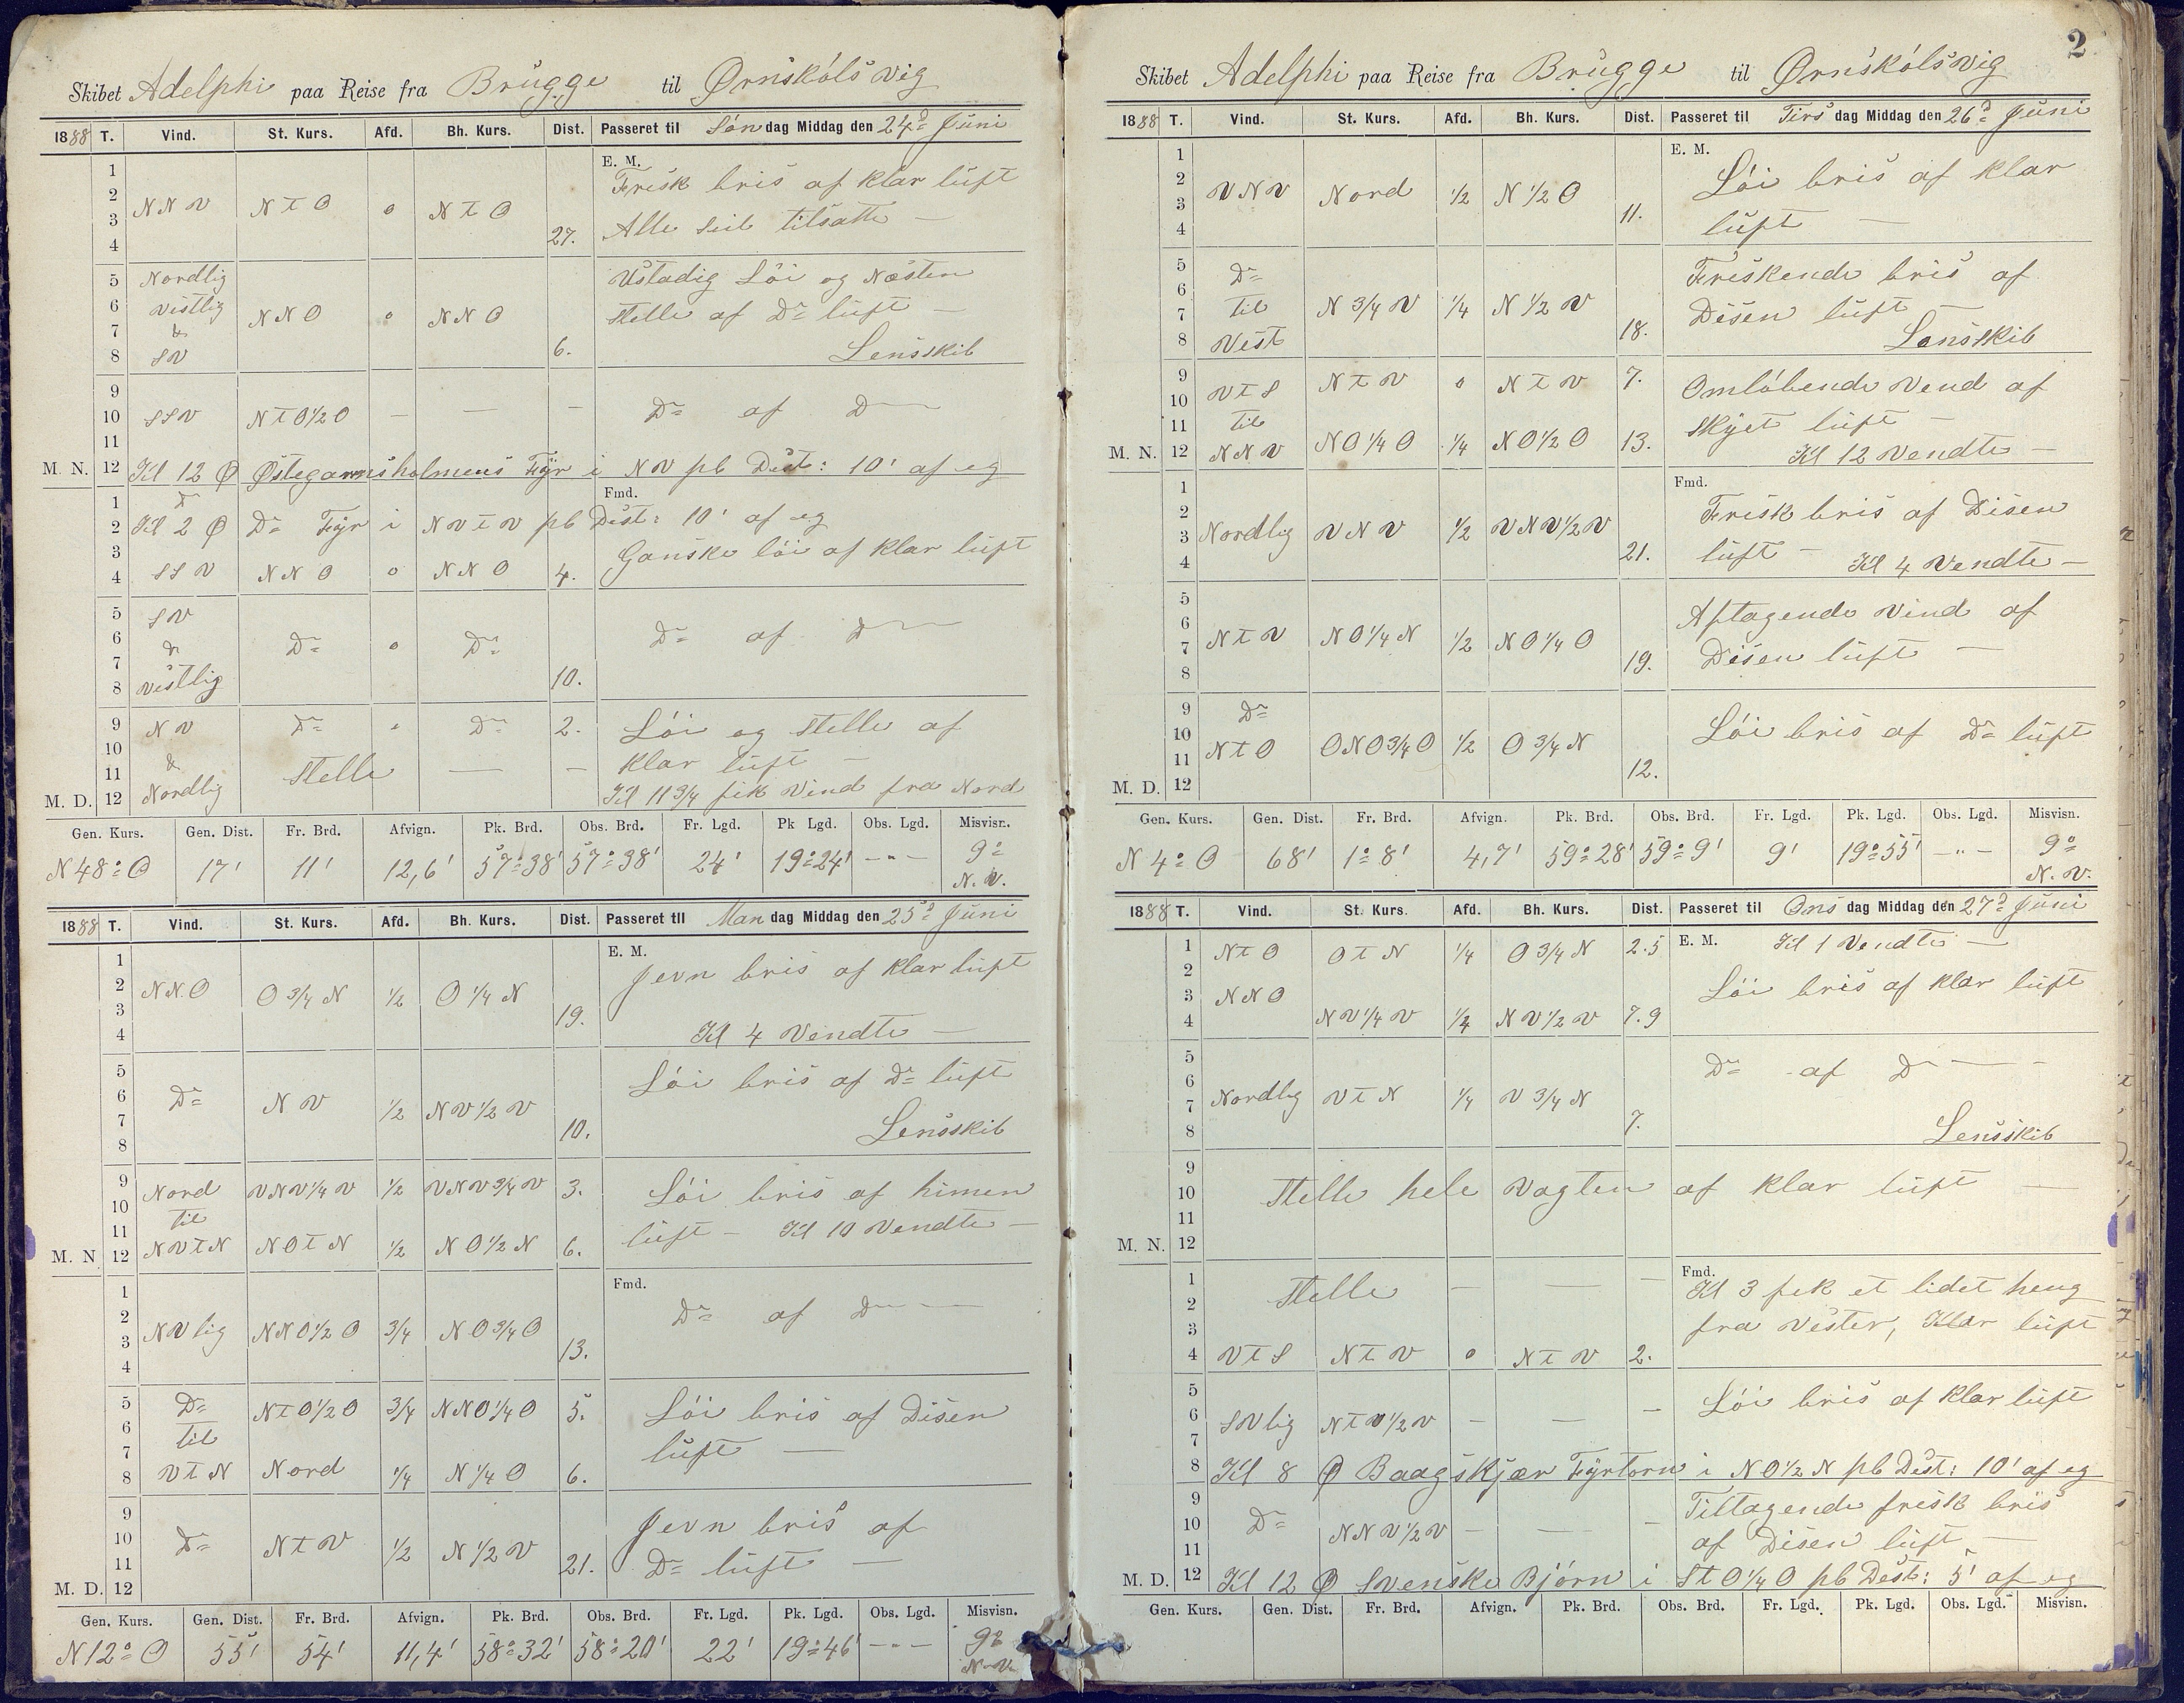 Skibet Adelphi paa Reise fra Brügge til Ørnskölsvig
1888 T. Vind. St. Kurs. Afd. Bh. Kurs. Dist. Passeret til Søn dag Middag den 24d Juni
E. M.
1
2
3
4
NNV NTO 0 NTO 27.
Frisk bris af klar lüft
Alle seil tilsatte —
5 Nordlig
6 Vestlig
7 &
8 SV
NNO 0 NNO 6.
Ustadig Löi og Næsten
Stelle af Do lüft —
Lensskib
9
10
11
SSV NTO1/2O — — — Do af D—
M. N. 12 Kl 12 Ø Østegarnsholmens Fyr i NV pb Dist: 10' af eg
Fmd.
1
2 Kl 2 Ø Do Fyr i NVTV pb Dist: 10' af eg
3
4 SSV NNO 0 NNO 4.
Ganske löi af klar lüft
5 SV
6
7 &
8 Vestlig
Do 0 Do 10.
Do af D—
9 NV Do " Do 2. Löi og Stelle af
10
11 & Stelle — — klar lüft —
M. D. 12 Nordlig Kl 11 3/4 fik Vind fra Nord
Gen. Kurs. Gen. Dist. Fr. Brd. Afvign. Pk. Brd. Obs. Brd. Fr. Lgd. Pk Lgd. Obs. Lgd. Misvisn.
N48°O 17' 11' 12,6' 57°38' 57°38' 24' 19°24' —"— 9° N.V.
1888 T. Vind. St. Kurs. Afd. Bh. Kurs. Dist. Passeret til Man dag Middag den 25d Juni
E. M.
1
2
3
4
NNO O3/4N 1/2 O1/4N 19.
Jevn bris af klar lüft
Kl 4 Vendte —
5
6
7
8
Do NV 1/2 NV1/2V 10.
Löi bris af Do lüft
Lensskib
9 Nord VNV1/4V 1/2 VNV3/4V 3. Löi bris af himen
10 til
11
lüft — Kl 10 Vendte —
M. N 12 NVTN NOTN 1/2 NO1/2N 6.
Fmd.
1
2
3
4
NVlig NNO1/2O 3/4 NO3/4O 13.
Do af D—
5 Do NTO1/2O 3/4 NNO1/4O 5. Löi bris af Disen
6 til
7
lüft —
8 VTN Nord 1/4 N1/4O 6.
9
10
11
Do NTV 1/2 N1/2V 21.
Jevn bris af
Do lüft —
M. D. 12
Gen. Kurs. Gen. Dist. Fr. Brd. Afvign. Pk. Brd. Obs. Brd. Fr. Lgd. Pk. Lgd. Obs. Lgd. Misvisn.
N12°O 55' 54' 11,4' 58°32' 58°20' 22' 19°46' —"— 9° N.V.
2
Skibet Adelphi paa Reise fra Brügge til Ørnskölsvig
1888 T. Vind. St. Kurs. Afd. Bh. Kurs. Dist. Passeret til Tirs dag Middag den 26d Juni
E. M.
1
2
3
4
VNV Nord 1/2 N1/2O 11.
Löi bris af klar
lüft —
5 Do
6
7 til
8 Vest
N3/4V 1/4 N1/2V 18.
Friskende bris af
Disen lüft —
Lensskib
9 VTS NTV 0 NTV 7. Omlöbende Vend af
10
11 til
skyet lüft —
M. N. 12 NNV NO1/4O 1/4 NO1/2O 13. Kl 12 Vendte —
Fmd.
1
2
3
4
Nordlig VNV 1/2 VNV1/2V 21.
Frisk bris af Disen
lüft — Kl 4 Vendte —
5
6
7
8
NTV NO1/4N 1/2 NO1/4O 19.
Aftagende Vind af
Disen lüft —
9 Do
10
11 NTO ONO3/4O 1/2 O3/4N 12.
Löi bris af Do lüft
M. D. 12
Gen. Kurs. Gen. Dist. Fr. Brd. Afvign. Pk. Brd. Obs. Brd. Fr. Lgd. Pk. Lgd. Obs. Lgd. Misvisn.
N4°O 68' 1°8' 4,7' 59°28' 59°9' 9' 19°55' —"— 9° N.V.
1888 T. Vind. St. Kurs. Afd. Bh. Kurs. Dist. Passeret til Ons dag Middag den 27d Juni
1 NTO OTN 1/4 O3/4N 2.5 E. M. Kl 1 Vendte —
2
3 NNO
Löi bris af klar lüft
4 NV1/4V 1/4 NV1/2V 7.9
5
6
7
8
Nordlig VTN 1/4 V3/4N 7.
Do af D—
Lensskib
9
10 Stelle hele Vagten af klar lüft —
11
M. N. 12
Fmd.
1 Stelle — — — Kl 3 fek et lidet heng
2
3
fra Vester, Klar lüft
4 VTS NTV 0 NTV 2.
5
6 SVlig NTV1/2V — — — Löi bris af klar lüft
7
8 Kl 8 Ø Baagskjær Fyrtorn i NO1/2N pb Dist: 10' af eg
9
10 Do NNV1/2V — — — Tiltagende fresk bris
11
af Disen lüft —
M. D. 12 Kl 12 Ø Svenske Björn i STO1/4O pb Dest: 5' af eg
Gen. Kurs. Gen. Dist. Fr. Brd. Afvign. Pk. Brd. Obs. Brd. Fr. Lgd. Pk. Lgd. Obs. Lgd. Misvisn.